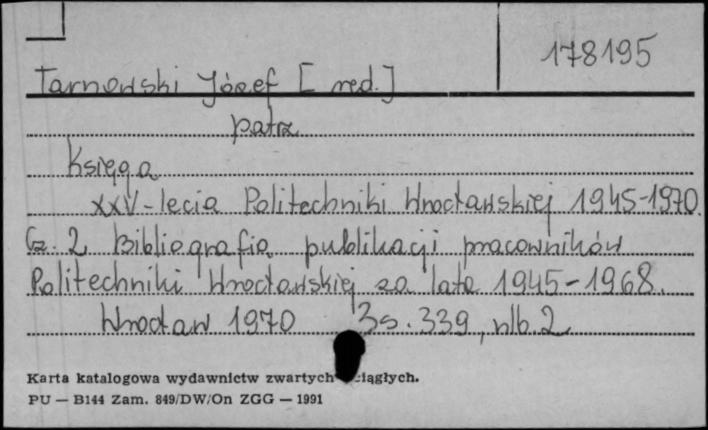 178195
Tarnowski Józef [red.]
patrz
Księga
XXV-lecia Politechniki Wrocławskiej 1945-1970.
Cz. 2 Bibliografia publikacji pracowników
Politechniki Wrocławskiej za lata 1945-1968.
Wrocław 1970 s. 339, nlb. 2
Karta katalogowa wydawnictw zwartych ciągłych.
PU — B144 Zam. 849/DW/On ZGG — 1991